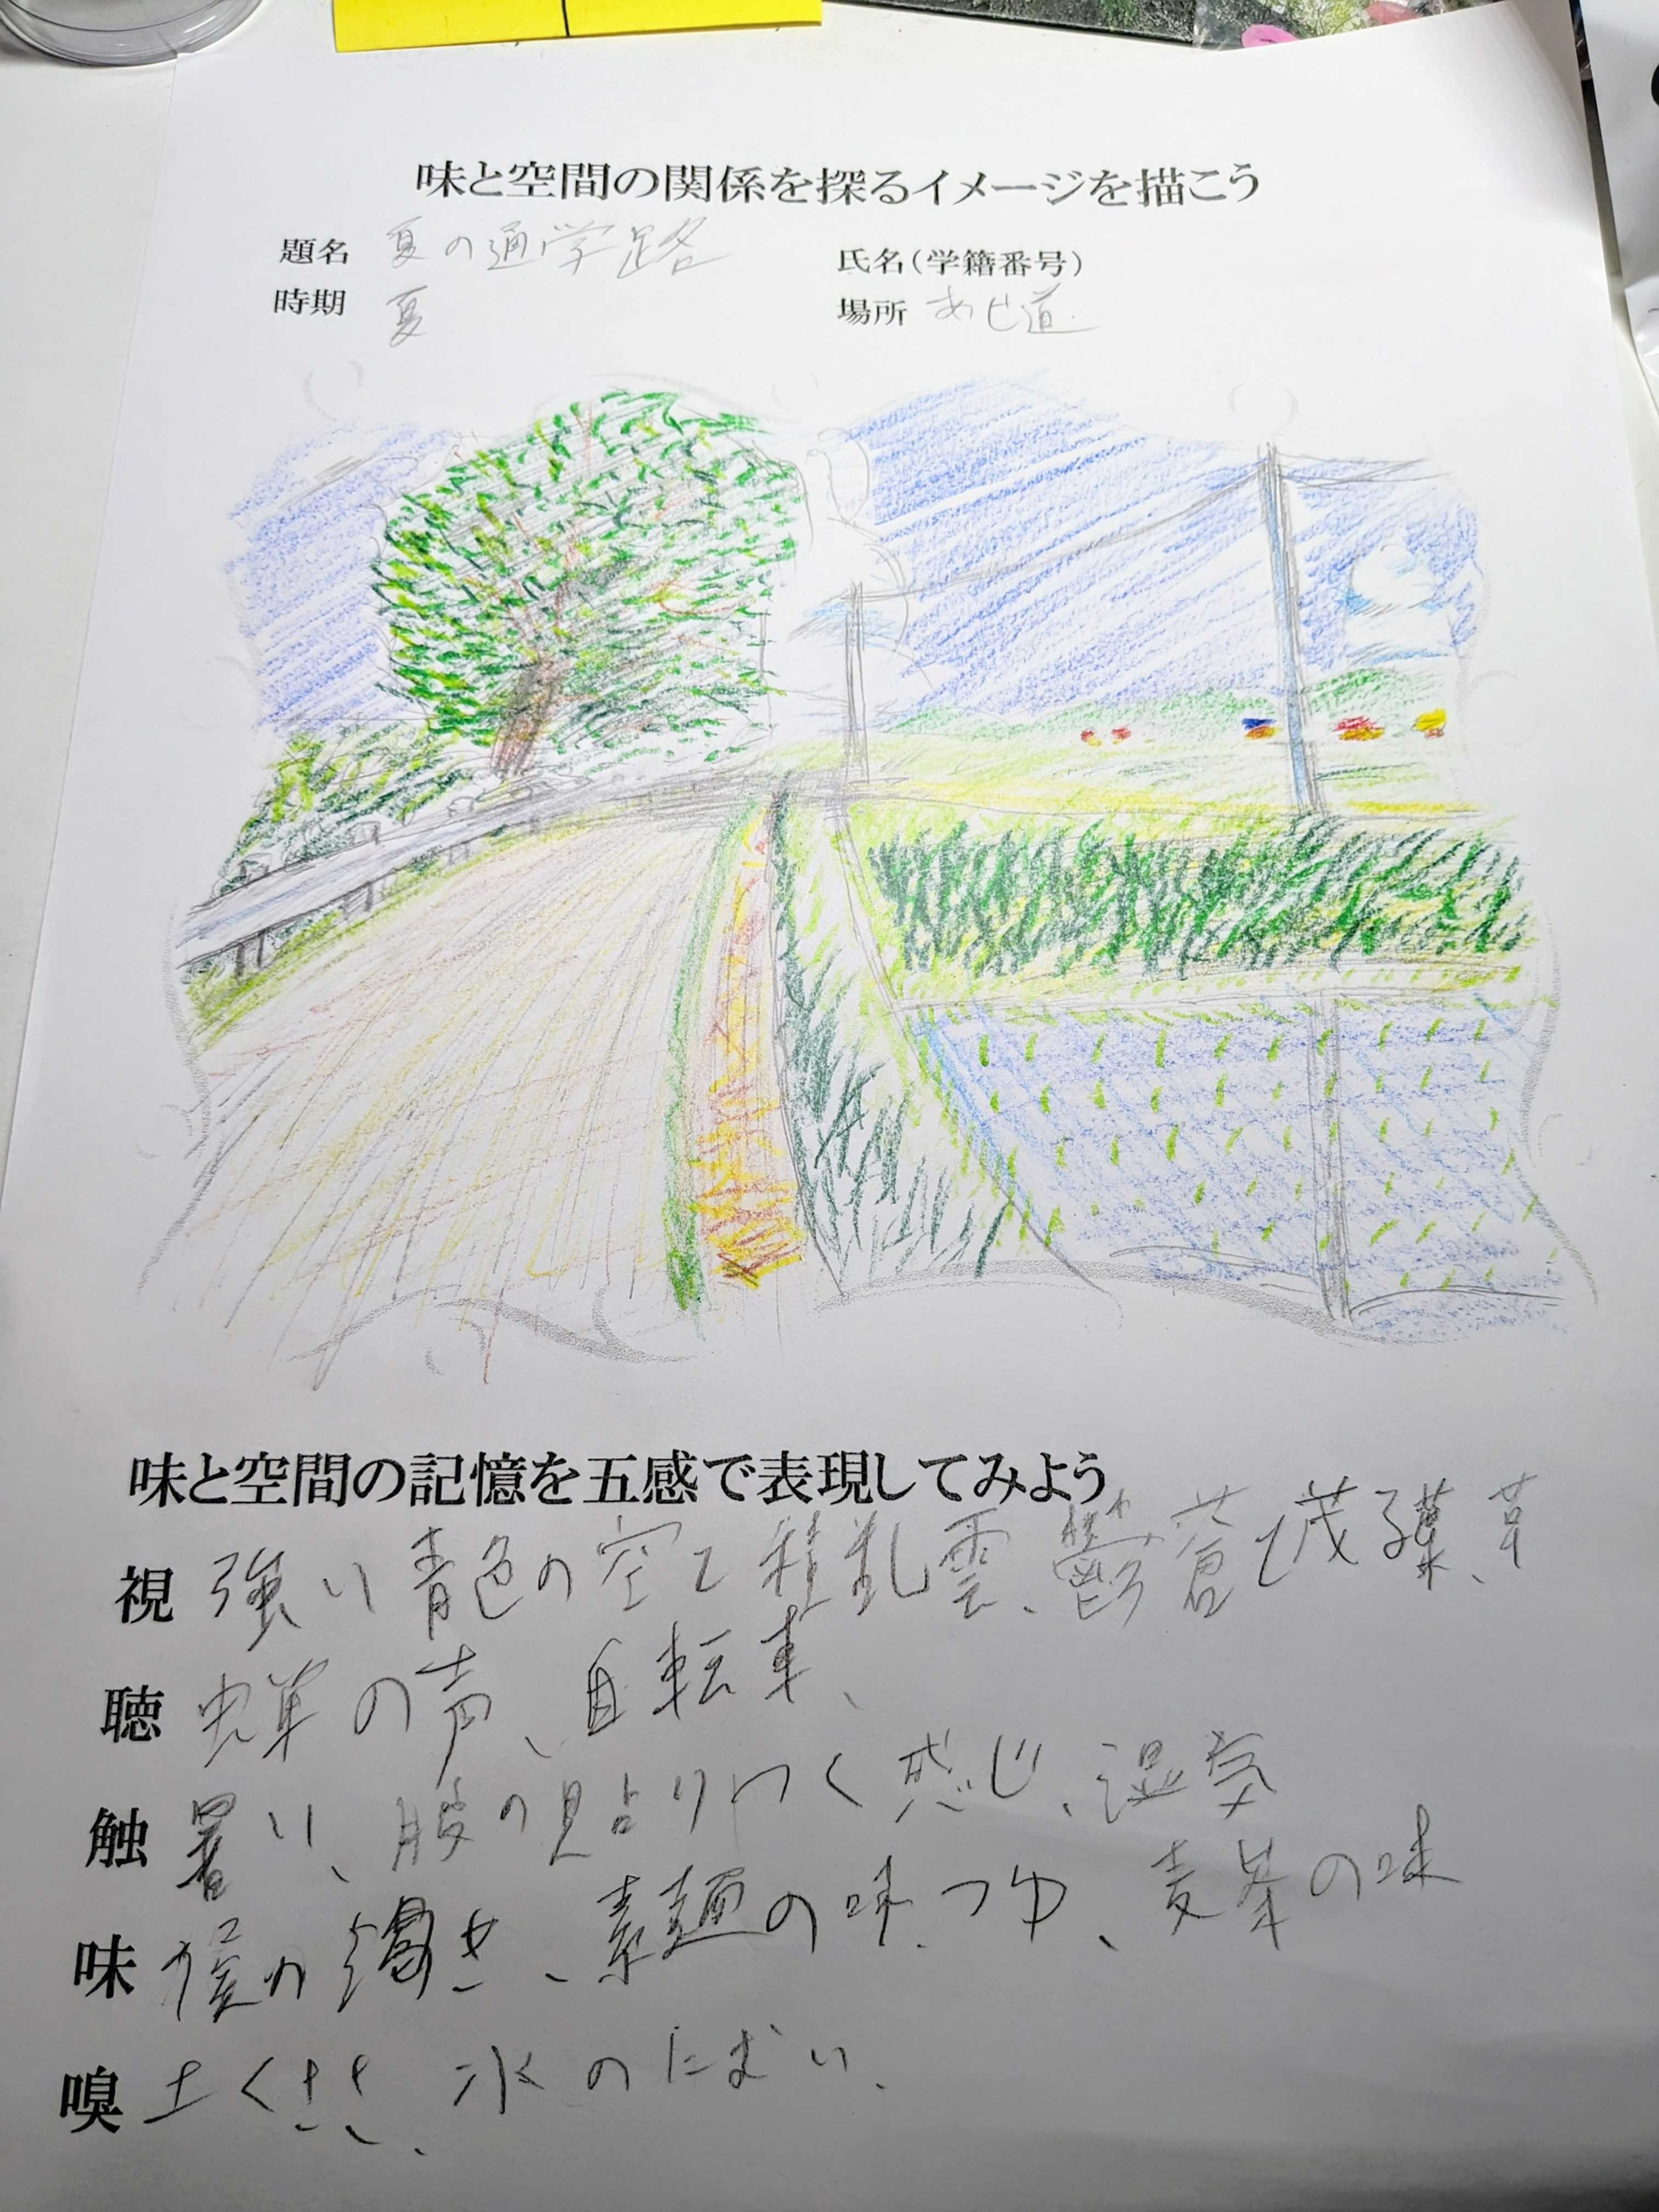 味と空間の関係を探るイメージを描こう
題名 夏の通学路
氏名(学籍番号)
時期 夏
場所 あじ道
味と空間の記憶を五感で表現してみよう
視 強い青色の空と積乱雲、鬱蒼と茂る葉、草
聴 蝉の声、自転車、
触 暑い、服の貼りつく感じ、湿気
味 喉の渇き、素麺の味、つゆ、麦茶の味
嗅 土くささ、水のにおい、